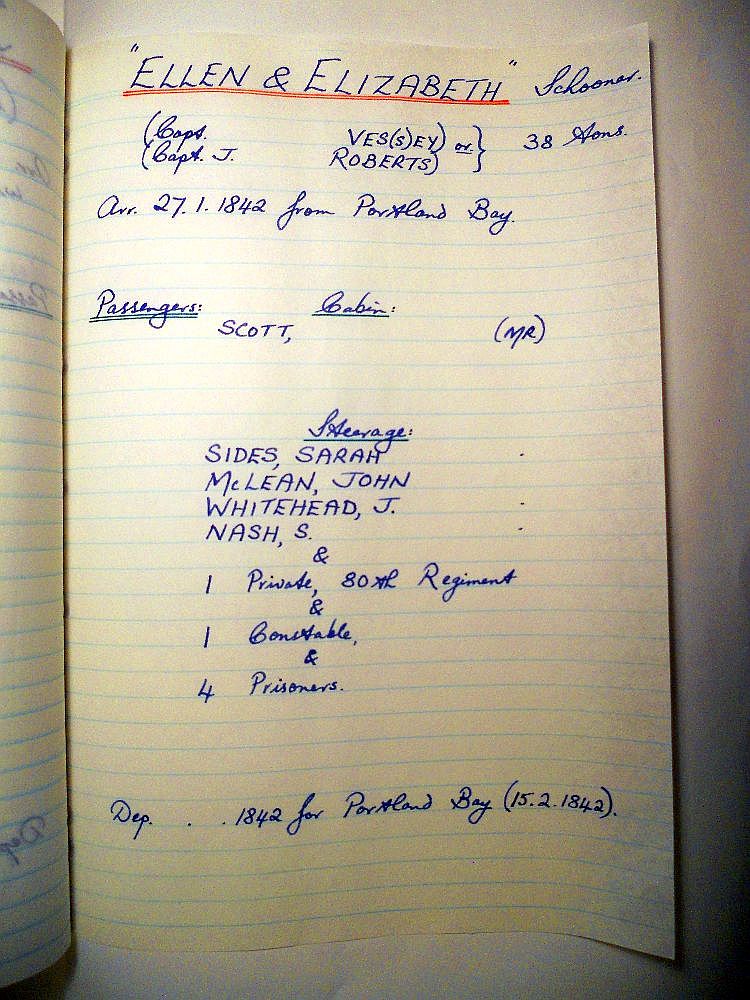 "ELLEN & ELIZABETH" Schooner.
(Capt. VES(S)EY) or } 38 Tons.
(Capt. J. ROBERTS)
Arr. 27.1.1842 from Portland Bay.
Passengers: Cabin:
SCOTT, (MR)
Steerage:
SIDES, SARAH
McLEAN, JOHN
WHITEHEAD, J.
NASH, S.
&
1 Private, 80th Regiment
&
1 Constable,
&
4 Prisoners.
Dep. . . 1842 for Portland Bay (15.2.1842).